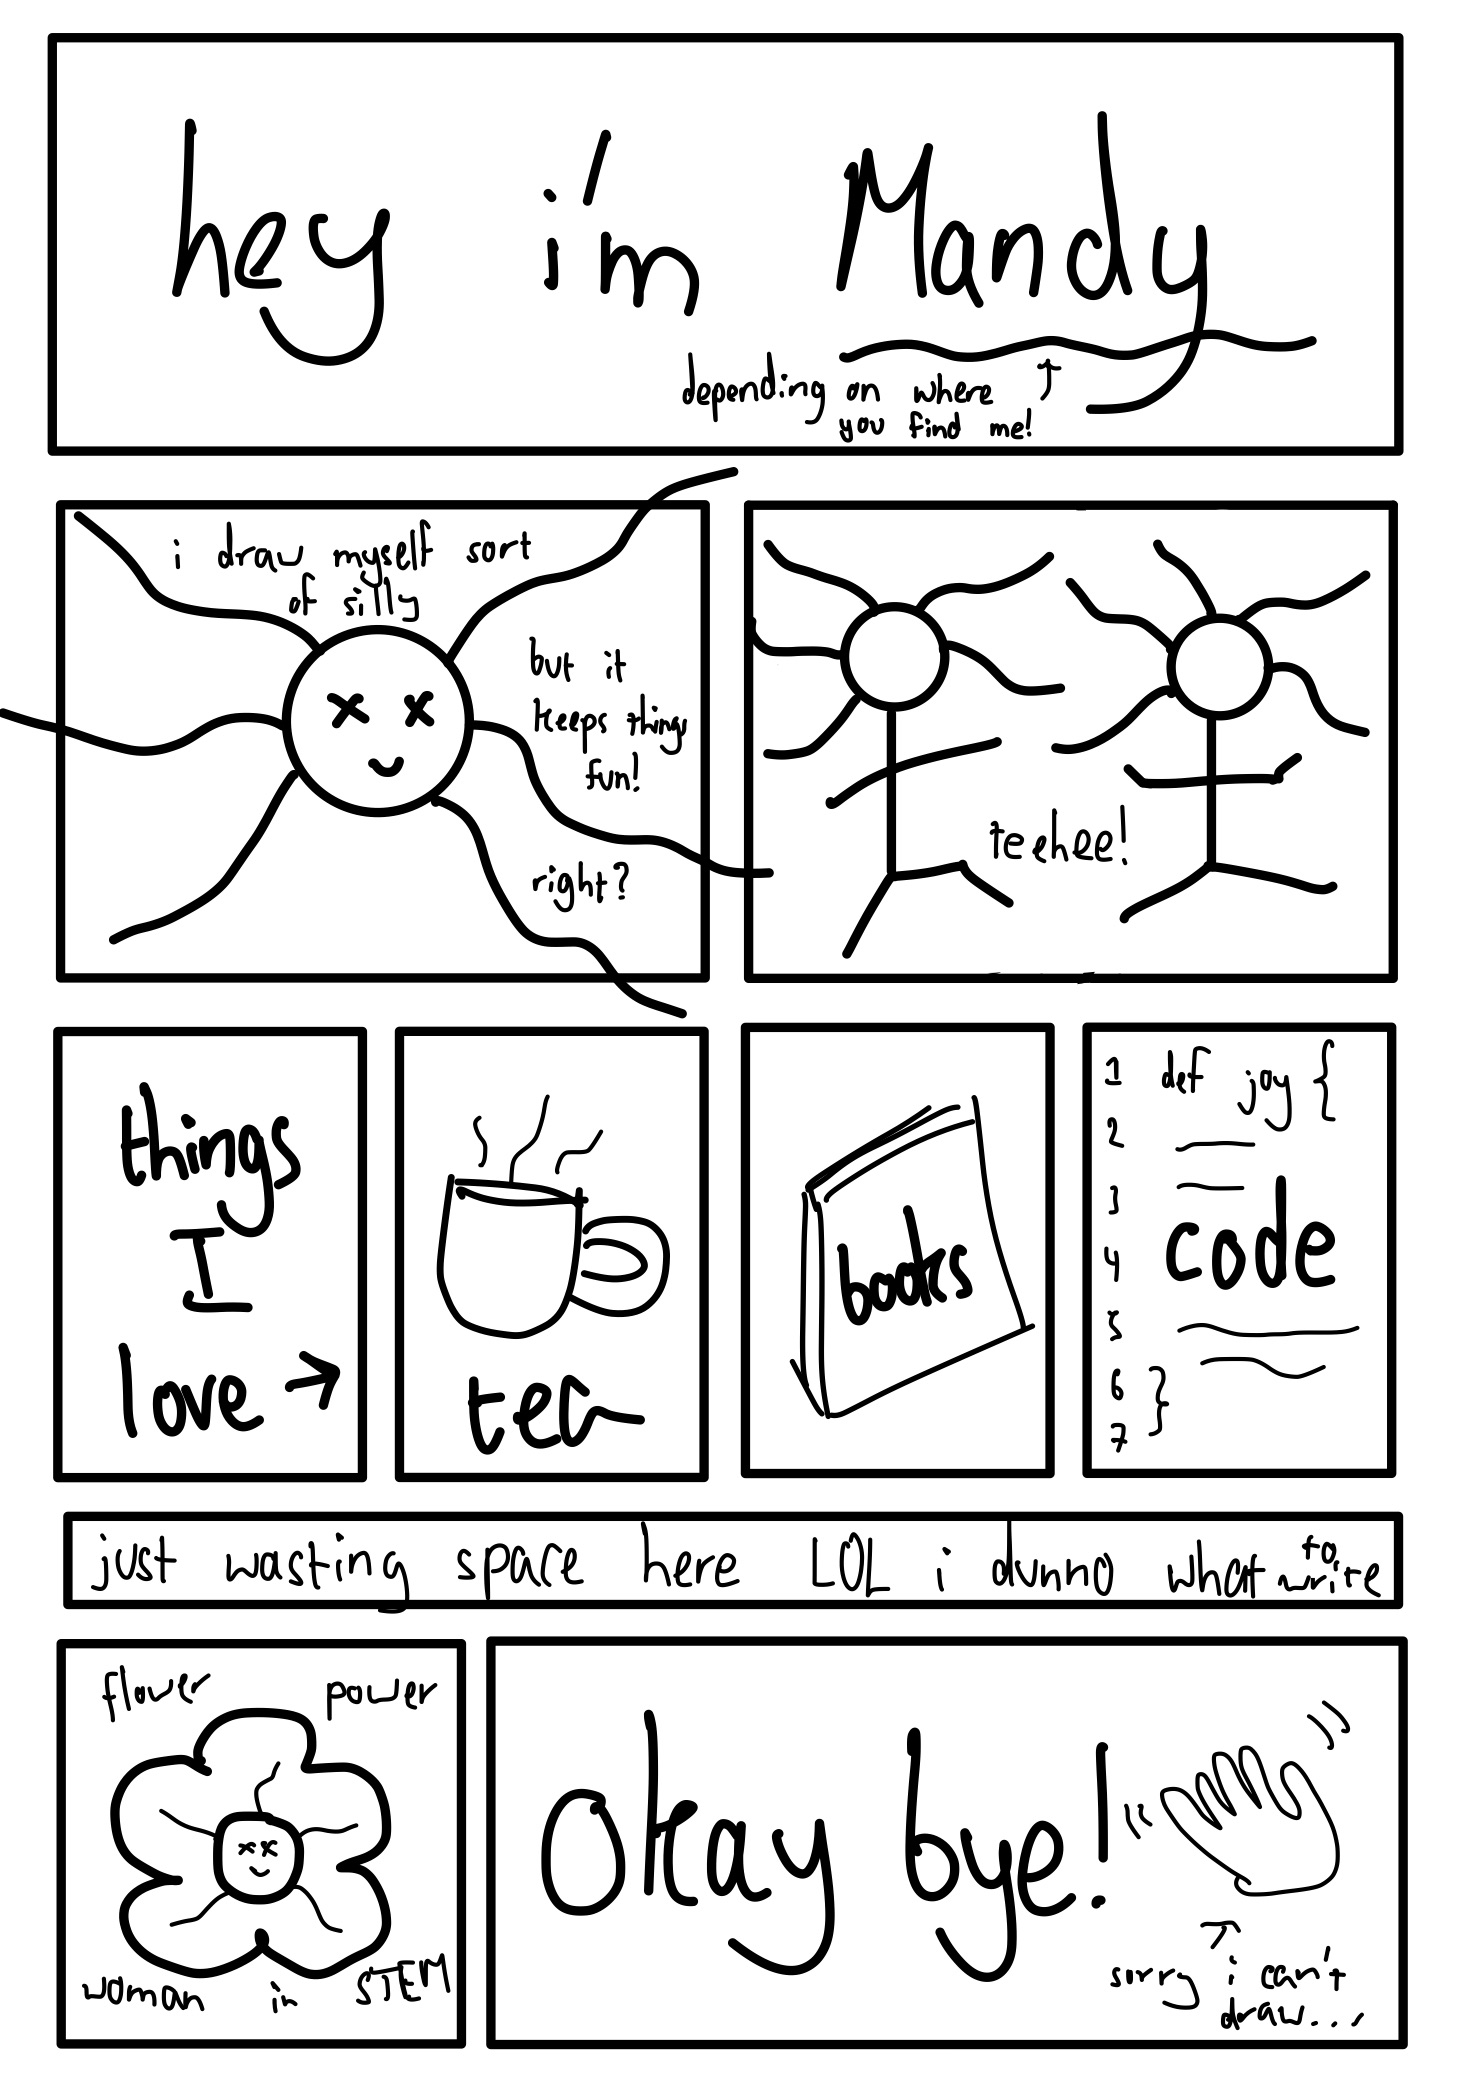 hey i'm Mandy
depending on where
you find me!
i draw myself sort
of silly
but it
keeps things
fun!
right?
teehee!
things
I
love →
tea
books
1 def joy {
2
3
code
4
5
6 }
7
just wasting space here LOL i dunno what to write
flower power
woman in STEM
Okay bye!
sorry i can't
draw...